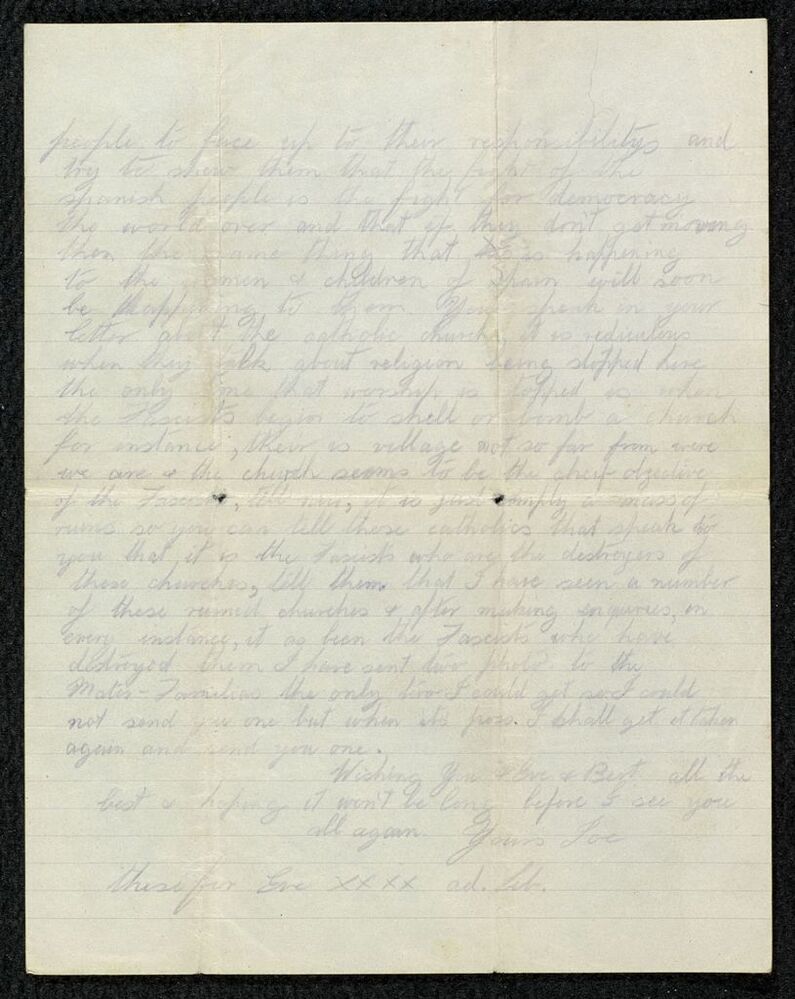 people to face up to their responsibilitys and
try to show them that the fight of the
spanish people is the fight for democracy
the world over and that if they don't get moving
then the same thing that is happening
to the women & children of Spain will soon
be happening to them. You speak in your
letter about the catholic church, it is rediculous
when they talk about religion being stopped here
the only time that worship is stopped is when
the Fascists begin to shell or bomb a church
for instance, their is village not so far from were
we are & the church seems to be the chief objective
of the Fascists, it is just simply a mass of
ruins so you can tell those catholics that speak to
you that it is the Fascists who are the destroyers of
these churches, tell them that I have seen a number
of these ruined churches & after making enquiries, in
every instance, it as been the Fascists who have
destroyed them I have sent two photos to the
Mater-Familias the only two I could get so I could
not send you one but when its poss. I shall get it taken
again and send you one.
Wishing You & Eve & Bert all the
best & hoping it won't be long before I see you
all again. Yours Joe
these for Eve XXXX ad. Lib.